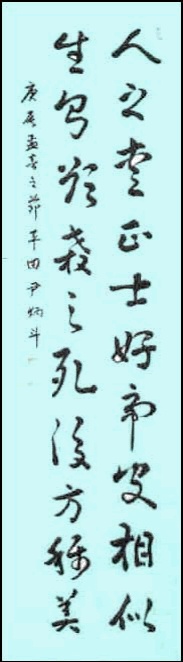 人之愛正士好虎皮相似
生則欲殺之死後方稱美
庚辰孟春之節 平田 尹炳斗